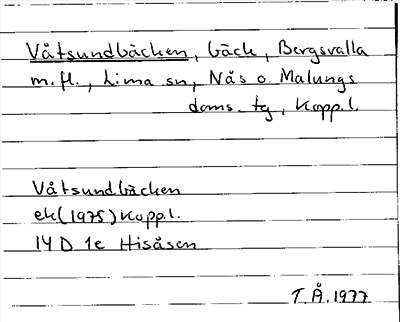 Våtsundbäcken, bäck, Bergsvalla
m.fl., Lima sn, Nås o Malungs
doms. tg, Kopp.l.
Våtsundbäcken
ek(1975)Kopp.l.
14 D 1e Hisåsen
T.Å.1977